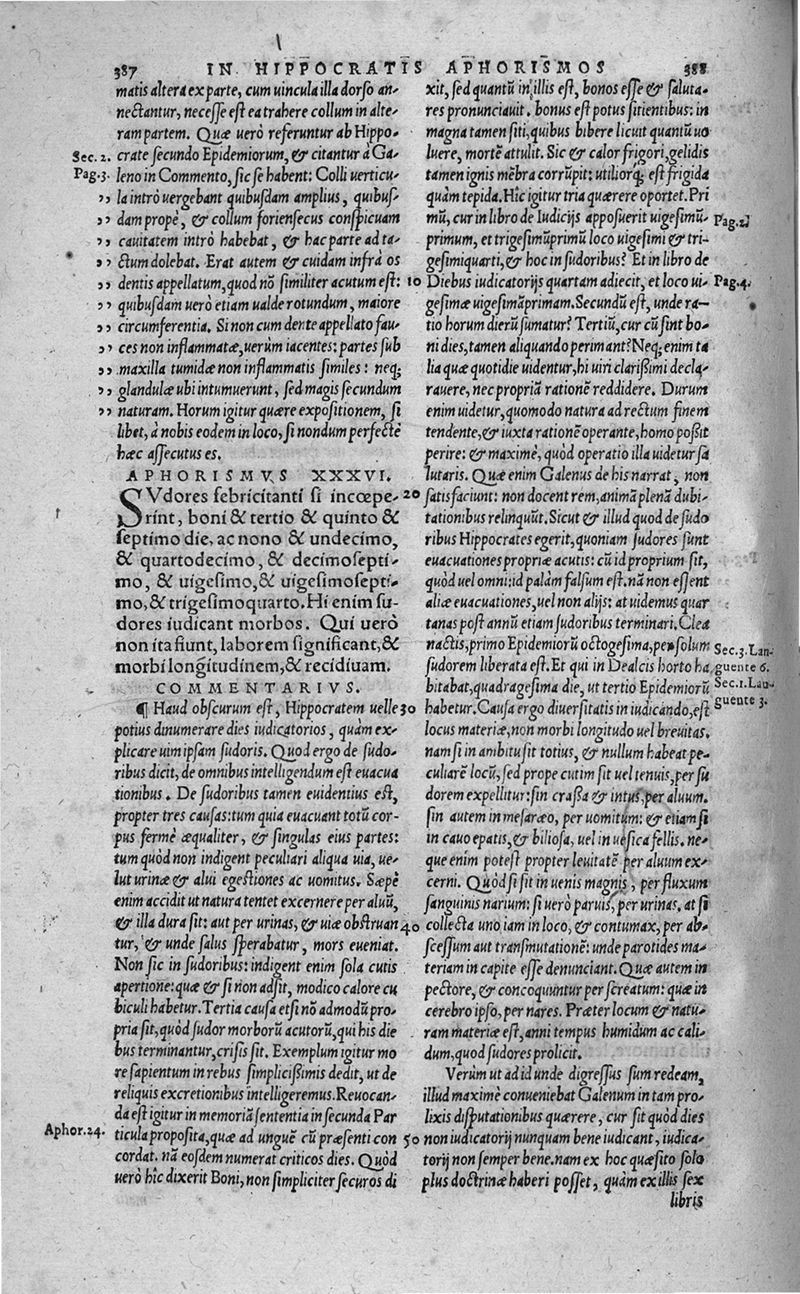 387 IN HIPPOCRATIS APHORISMOS 388
matis altera ex parte, cum uincula illa dorso an-
nectantur, necesse est ea trahere collum in alte-
ram partem. Quæ uerò referuntur ab Hippo-
Sec. 2. crate secundo Epidemiorum, & citantur à Ga-
Pag. 3. leno in Commento, sic se habent: Colli uerticu-
,, la intrò uergebant quibusdam amplius, quibus-
,, dam propè, & collum forinsecus conspicuam
,, cauitatem intrò habebat, & hac parte ad ta-
,, ctum dolebat. Erat autem & cuidam infrà os
,, dentis appellatum, quod nõ similiter acutum est:
,, quibusdam uerò etiam ualde rotundum, maiore
,, circumferentia. Si non cum dente appellato fau-
,, ces non inflammatæ, uerùm iacentes: partes sub
,, maxilla tumidæ non inflammatis similes: neq;
,, glandulæ ubi intumuerunt, sed magis secundum
,, naturam. Horum igitur quære expositionem, si
libet, à nobis eodem in loco, si nondum perfectè
hæc assecutus es.
APHORISMVS XXXVI.
SVdores febricitanti si incœpe-
rint, boni & tertio & quinto &
septimo die, ac nono & undecimo,
& quartodecimo, & decimosepti-
mo, & uigesimo, & uigesimosepti-
mo, & trigesimoquarto. Hi enim su-
dores iudicant morbos. Qui uerò
non ita fiunt, laborem significant, &
morbi longitudinem, & recidiuam.
COMMENTARIVS.
¶ Haud obscurum est, Hippocratem uelle
potius dinumerare dies iudicatorios, quàm ex-
plicare uim ipsam sudoris. Quod ergo de sudo-
ribus dicit, de omnibus intelligendum est euacua
tionibus. De sudoribus tamen euidentius est,
propter tres causas: tum quia euacuant totũ cor-
pus fermè æqualiter, & singulas eius partes:
tum quòd non indigent peculiari aliqua uia, ue-
lut urinæ & alui egestiones ac uomitus. Sæpè
enim accidit ut natura tentet excernere per aluũ,
& illa dura sit: aut per urinas, & uiæ obstruan
tur, & unde salus sperabatur, mors eueniat.
Non sic in sudoribus: indigent enim sola cutis
apertione: quæ & si non adsit, modico calore cu
biculi habetur. Tertia causa etsi nõ admodũ pro-
pria sit, quòd sudor morborũ acutorũ, qui his die
bus terminantur, crisis sit. Exemplum igitur mo
re sapientum in rebus simplicißimis dedit, ut de
reliquis excretionibus intelligeremus. Reuocan-
da est igitur in memoriã sententia in secunda Par
Aphor. 24. ticula proposita, quæ ad unguẽ cũ præsenti con
cordat. nã eosdem numerat criticos dies. Quòd
uerò hîc dixerit Boni, non simpliciter securos di
xit, sed quantũ in illis est, bonos esse & saluta-
res pronunciauit. bonus est potus sitientibus: in
magna tamen siti, quibus bibere licuit quantũ uo
luere, mortẽ attulit. Sic & calor frigori, gelidis
tamen ignis mẽbra corrupit: utiliorq; est frigida
quàm tepida. Hic igitur tria quærere oportet. Pri
mũ, cur in libro de Iudicijs apposuerit uigesimũ- Pag. 2.
primum, et trigesimũprimũ loco uigesimi & tri-
gesimiquarti, & hoc in sudoribus? Et in libro de
10 Diebus iudicatorijs quartam adiecit, et loco ui- Pag. 4.
gesimæ uigesimãprimam. Secundũ est, unde ra-
tio horum dierũ sumatur? Tertiũ, cur cũ sint bo-
ni dies, tamen aliquando perimant? Neq; enim ta
lia quæ quotidie uidentur, hi uiri clarißimi decla-
rauere, nec propriã rationẽ reddidere. Durum
enim uidetur, quomodo natura ad rectum finem
tendente, & iuxta rationẽ operante, homo poßit
perire: & maximè, quòd operatio illa uidetur sa
lutaris. Quæ enim Galenus de his narrat, non
20 satisfaciunt: non docent rem, animã plenã dubi-
tationibus relinquũt. Sicut & illud quod de sudo
ribus Hippocrates egerit, quoniam sudores sunt
euacuationes propriæ acutis: cũ id proprium sit,
quòd uel omni: id palàm falsum est. nã non essent
aliæ euacuationes, uel non alijs: at uidemus quar
tanas post annũ etiam sudoribus terminari. Clea
nactis, primo Epidemiorũ octogesima, per solum Sec. 3. Lan-
sudorem liberata est. Et qui in Dealcis horto ha, guente 6.
bitabat, quadragesima die, ut tertio Epidemiorũ Sec. 1. Lan-
30 habetur. Causa ergo diuersitatis in iudicando, est guente 3.
locus materiæ, non morbi longitudo uel breuitas.
nam si in ambitu sit totius, & nullum habeat pe-
culiarẽ locũ, sed prope cutim sit uel tenuis, per su
dorem expellitur: sin crassa & intus, per aluum.
sin autem in mesaræo, per uomitum: & etiam si
in cauo epatis, & biliosa, uel in uesica fellis. ne-
que enim potest propter leuitatẽ per aluum ex-
cerni. Quòd si sit in uenis magnis, per fluxum
sanguinis narium: si uerò paruis, per urinas. at si
40 collecta uno iam in loco, & contumax, per ab-
scessum aut transmutationẽ: unde parotides ma-
teriam in capite esse denunciant. Quæ autem in
pectore, & concoquuntur per screatum: quæ in
cerebro ipso, per nares. Præter locum & natu-
ram materiæ est, anni tempus humidum ac cali-
dum, quod sudores prolicit.
Verùm ut ad id unde digressus sum redeam,
illud maximè conueniebat Galenum in tam pro-
lixis disputationibus quærere, cur sit quòd dies
50 non iudicatorij nunquam bene iudicant, iudica-
torij non semper bene. nam ex hoc quæsito solo
plus doctrinæ haberi posset, quàm ex illis sex
libris